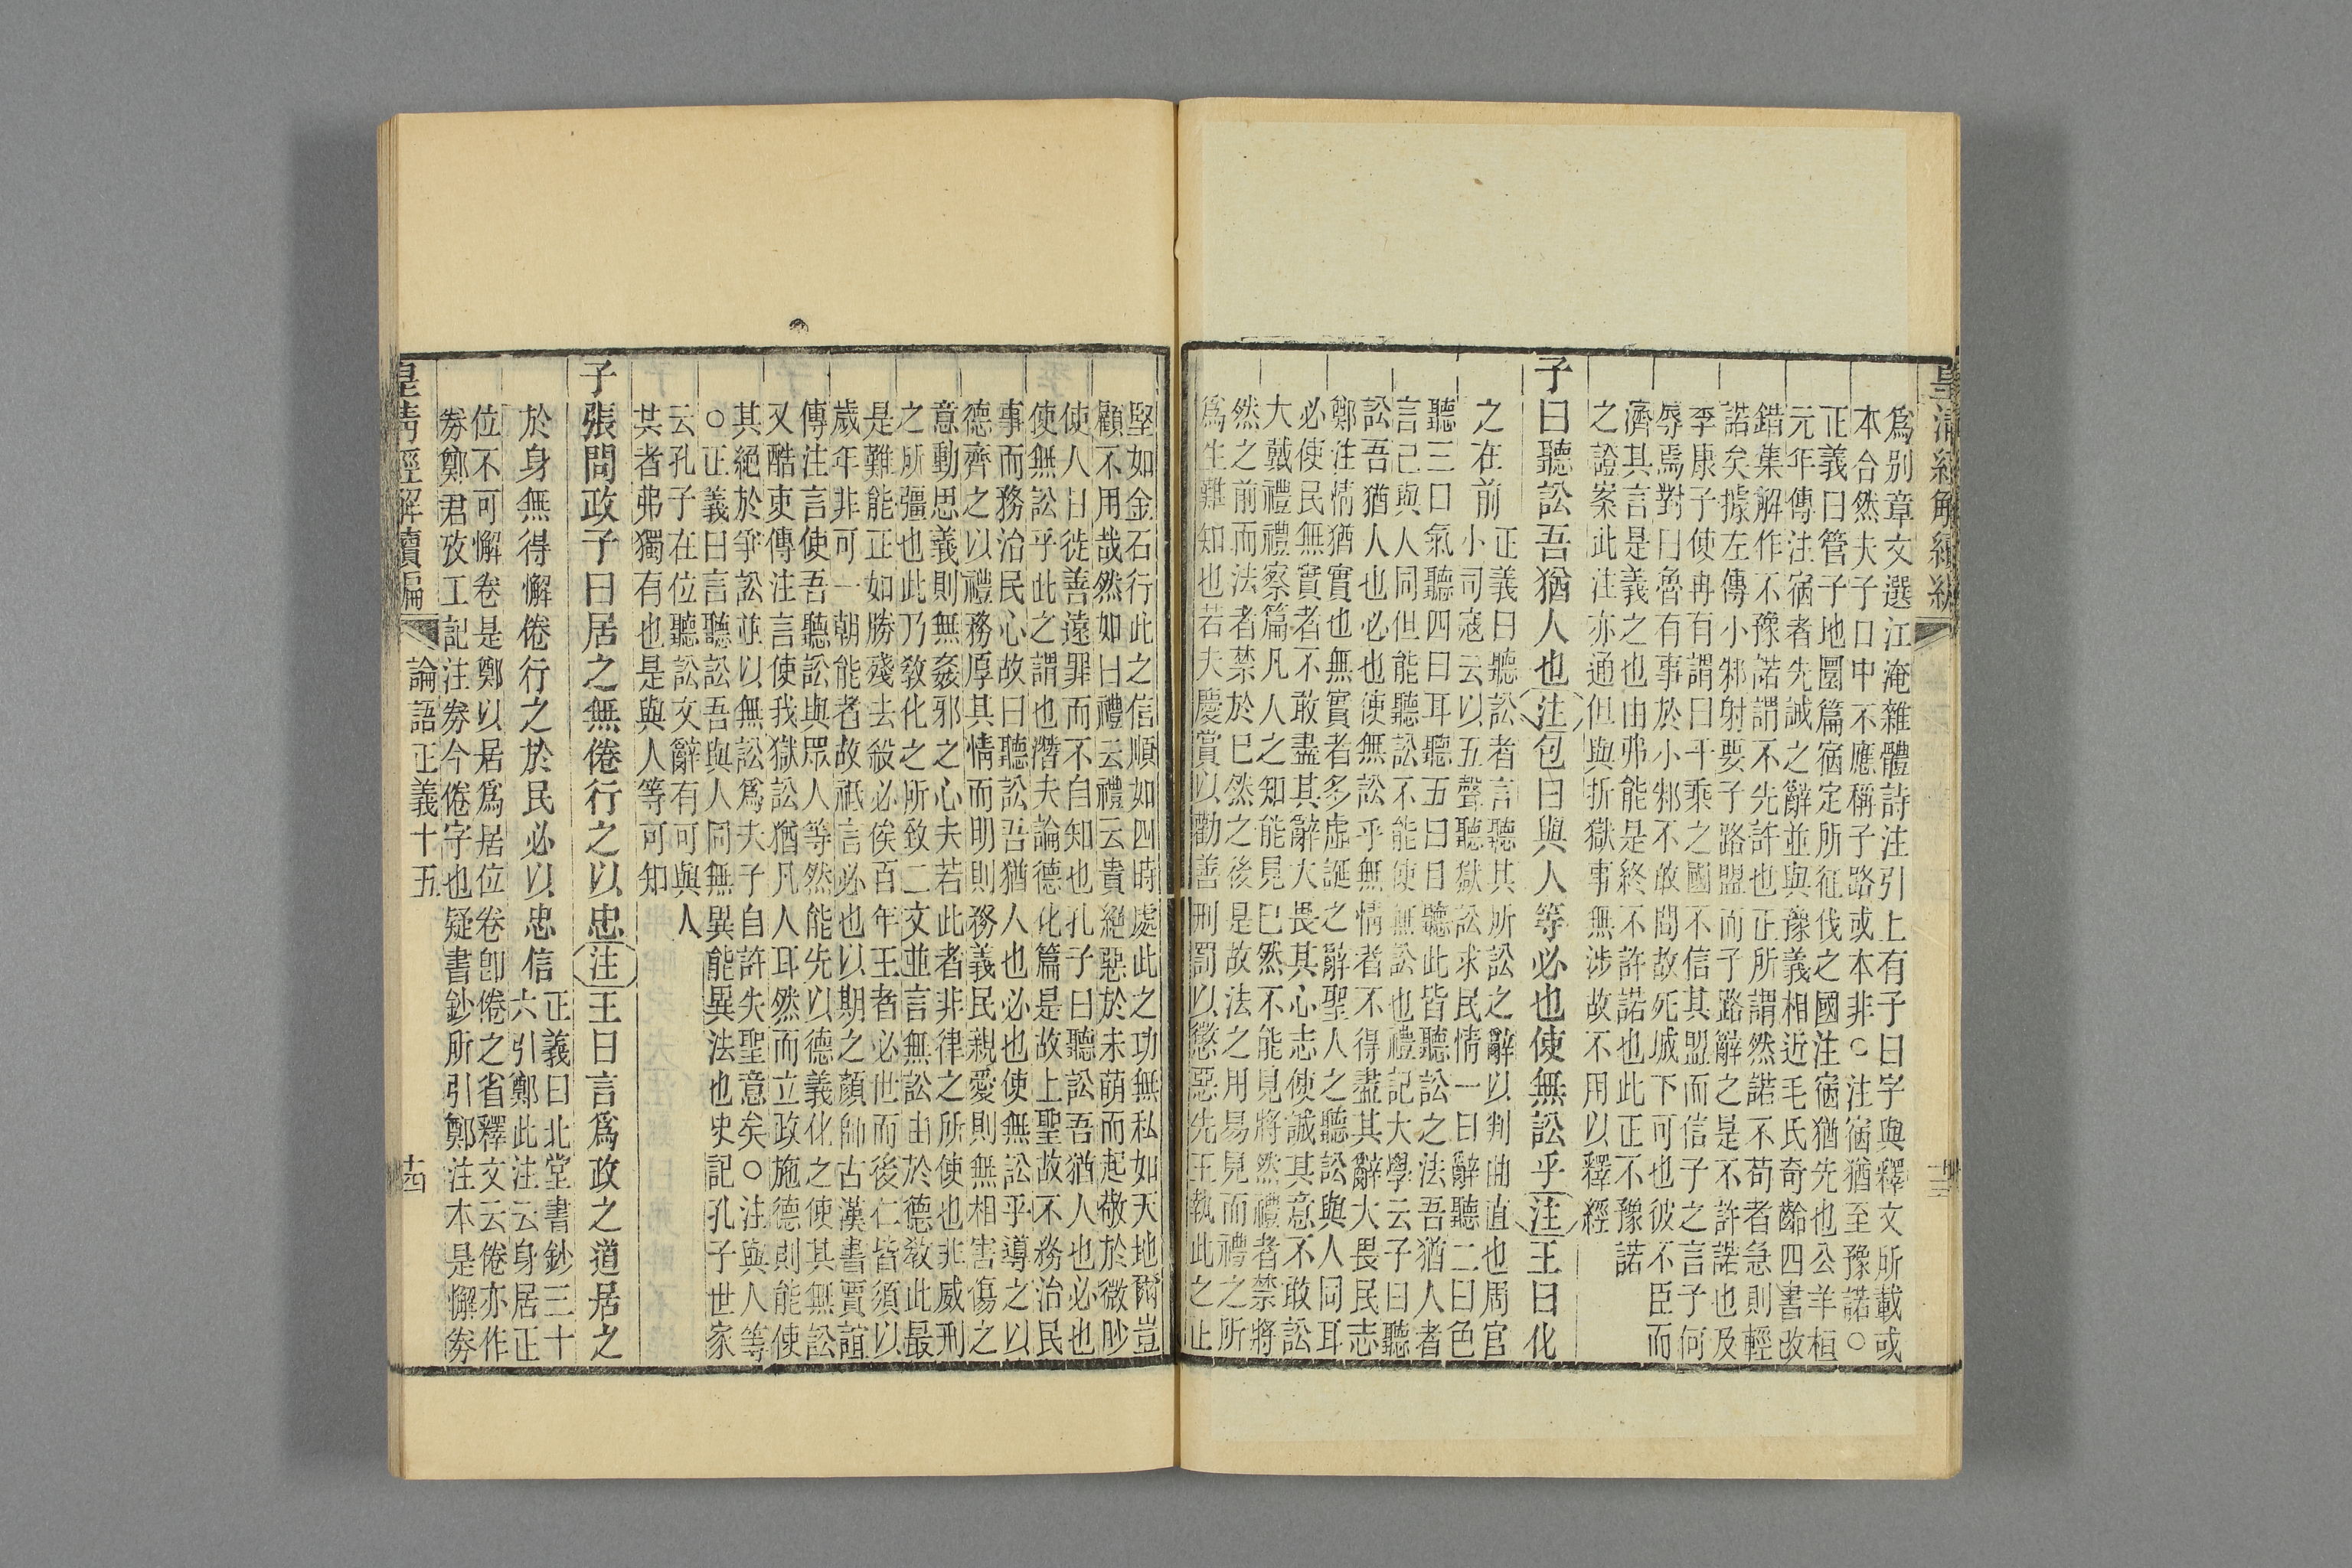 皇清經解續編
爲别章文選江淹雜體詩注引上有子曰字與釋文所載或
本合然夫子口中不應稱子路或本非○注宿猶至豫諾○
正義曰管子地圖篇宿定所征伐之國注宿猶先也公羊桓
元年傳注宿者先誡之辭並與豫義相近毛氏奇齡四書改
錯集解作不豫諾謂不先許也正所謂然諾不苟者急則輕
諾矣據左傳小邾射要子路盟而子路辭之是不許諾也及
季康子使冉有謂曰千乘之國不信其盟而信子之言子何
辱焉對曰魯有事於小邾不敢問故死城下可也彼不臣而
濟其言是義之也由弗能是終不許諾也此正不豫諾
之證案此注亦通但與折獄事無涉故不用以釋經
子曰聽訟吾猶人也注包曰與人等必也使無訟乎注王曰化
之在前正義曰聽訟者言聽其所訟之辭以判曲直也周官
小司寇云以五聲聽獄訟求民情一曰辭聽二曰色
聽三曰氣聽四曰耳聽五曰目聽此皆聽訟之法吾猶人者
言己與人同但能聽訟不能使無訟也禮記大學云子曰聽
訟吾猶人也必也使無訟乎無情者不得盡其辭大畏民志
鄭注情猶實也無實者多虛誕之辭聖人之聽訟與人同耳
必使民無實者不敢盡其辭大畏其心志使誠其意不敢訟
大戴禮禮察篇凡人之知能見已然不能見將然禮者禁將
然之前而法者禁於已然之後是故法之用易見而禮之所
爲生難知也若夫慶賞以勸善刑罰以懲惡先王執此之正
堅如金石行此之信順如四時處此之功無私如天地爾豈
顧不用哉然如曰禮云禮云貴絕惡於未萌而起敬於微眇
使人日徙善遠罪而不自知也孔子曰聽訟吾猶人也必也
使無訟乎此之謂也潛夫論德化篇是故上聖故不務治民
事而務治民心故曰聽訟吾猶人也必也使無訟乎導之以
德齊之以禮務厚其情而明則務義民親愛則無相害傷之
意動思義則無姦邪之心夫若此者非律之所使也非威刑
之所彊也此乃敎化之所致二文並言無訟由於德敎此最
是難能正如勝殘去殺必俟百年王者必世而後仁皆須以
歲年非可一朝能者故祇言必也以期之顏師古漢書賈誼
傳注言使吾聽訟與眾人等然能先以德義化之使其無訟
又酷吏傳注言使我獄訟猶凡人耳然而立政施德則能使
其絕於爭訟並以無訟爲夫子自許失聖意矣○注與人等
○正義曰言聽訟吾與人同無異能異法也史記孔子世家
云孔子在位聽訟文辭有可與人
其者弗獨有也是與人等可知
子張問政子曰居之無倦行之以忠注王曰言爲政之道居之
於身無得懈倦行之於民必以忠信正義曰北堂書鈔三十
六引鄭此注云身居正
位不可懈卷是鄭以居爲居位卷卽倦之省釋文云倦亦作
劵鄭君攷工記注劵今倦字也疑書鈔所引鄭注本是懈劵
皇淸經解續編 論語正義十五 十四